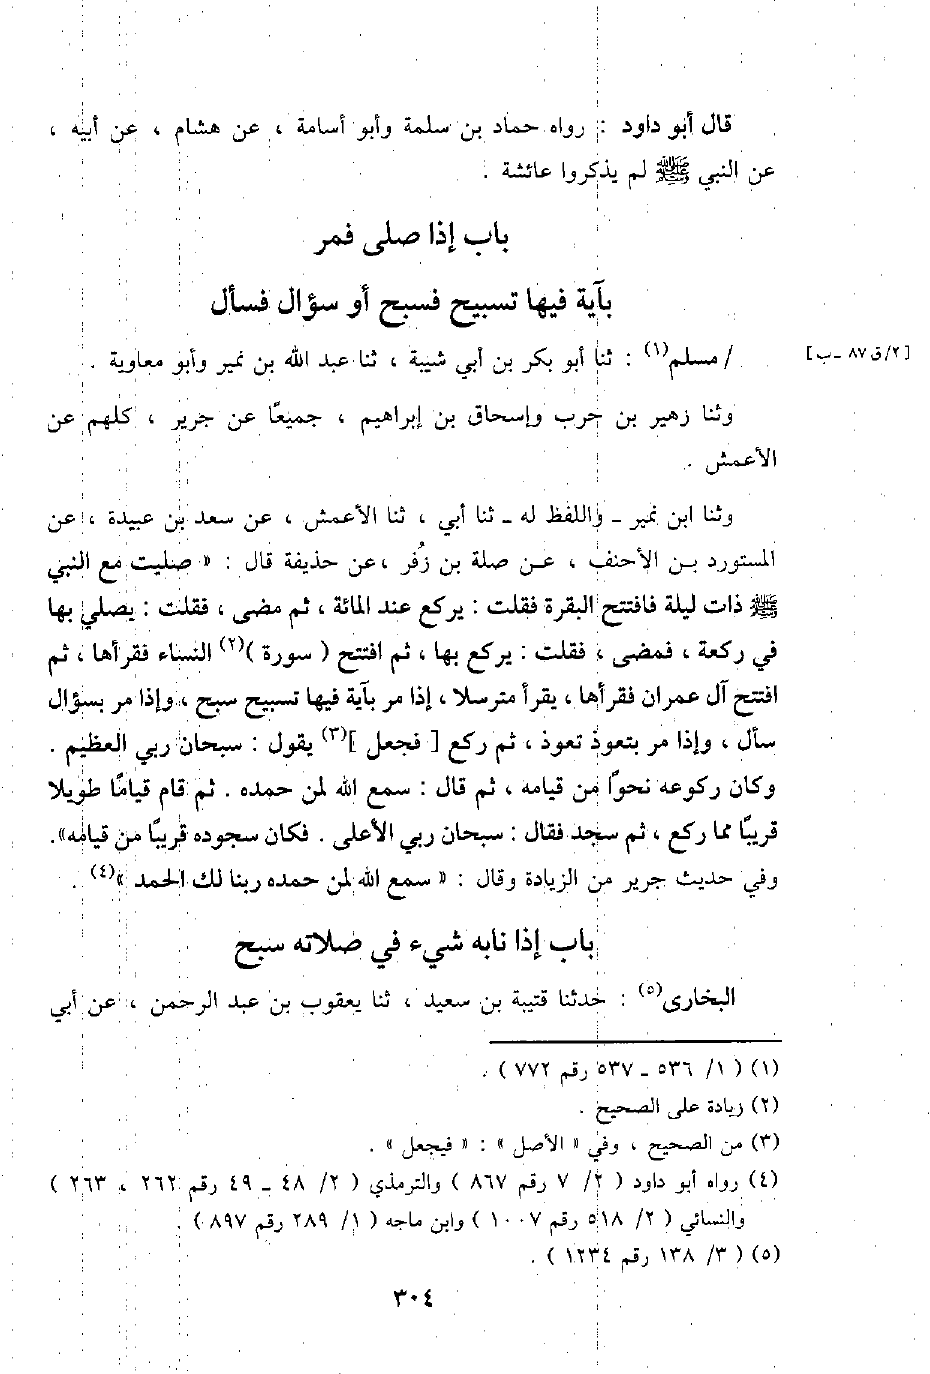 قال أبو داود : رواه حماد بن سلمة وأبو أسامة ، عن هشام ، عن أبيه ،
عن النبي ﷺ لم يذكروا عائشة .
باب إذا صلى فمر
بآية فيها تسبيح فسبح أو سؤال فسأل
/ مسلم(١) : ثنا أبو بكر بن أبي شيبة ، ثنا عبد الله بن نمير وأبو معاوية .
[ ٢/ق ٨٧ -ب]
وثنا زهير بن حرب وإسحاق بن إبراهيم ، جميعًا عن جرير ، كلهم عن
الأعمش .
وثنا ابن نمير ـ واللفظ له ـ ثنا أبي ، ثنا الأعمش ، عن سعد بن عبيدة ، عن
المستورد بـن الأحنف ، عـن صلة بن زُفر ، عن حذيفة قال : « صليت مع النبي
ﷺ ذات ليلة فافتتح البقرة فقلت : يركع عند المائة ، ثم مضى ، فقلت : يصلي بها
في ركعة ، فمضى ، فقلت : يركع بها ، ثم افتتح ( سورة )(٢) النساء فقرأها ، ثم
افتتح آل عمران فقرأها ، يقرأ مترسلا ، إذا مر بآية فيها تسبيح سبح ، وإذا مر بسؤال
سأل ، وإذا مر بتعوذ تعوذ ، ثم ركع [ فجعل ](٣) يقول : سبحان ربي العظيم .
وكان ركوعه نحوًا من قيامه ، ثم قال : سمع الله لمن حمده . ثم قام قيامًا طويلا
قريبًا مما ركع ، ثم سجد فقال : سبحان ربي الأعلى . فكان سجوده قريبًا من قيامه».
وفي حديث جرير من الزيادة وقال : « سمع الله لمن حمده ربنا لك الحمد »(٤) .
باب إذا نابه شيء في صلاته سبح
البخارى(٥) : حدثنا قتيبة بن سعيد ، ثنا يعقوب بن عبد الرحمن ، عن أبي
(١) ( ١/ ٥٣٦ ـ ٥٣٧ رقم ٧٧٢ ) .
(٢) زيادة على الصحيح .
(٣) من الصحيح ، وفي « الأصل » : « فيجعل » .
(٤) رواه أبو داود ( ٢/ ٧ رقم ٨٦٧ ) والترمذي ( ٢/ ٤٨ ـ ٤٩ رقم ٢٦٢ ، ٢٦٣ )
والنسائي ( ٢/ ٥١٨ رقم ١٠٠٧ ) وابن ماجه ( ١/ ٢٨٩ رقم ٨٩٧ ) .
(٥) ( ٣/ ١٣٨ رقم ١٢٣٤ ) .
٣٠٤